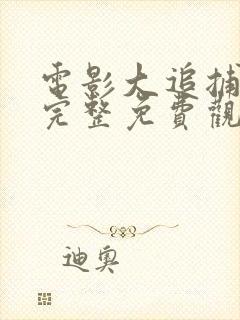 電影大追捕
完整免費觀
迪奧